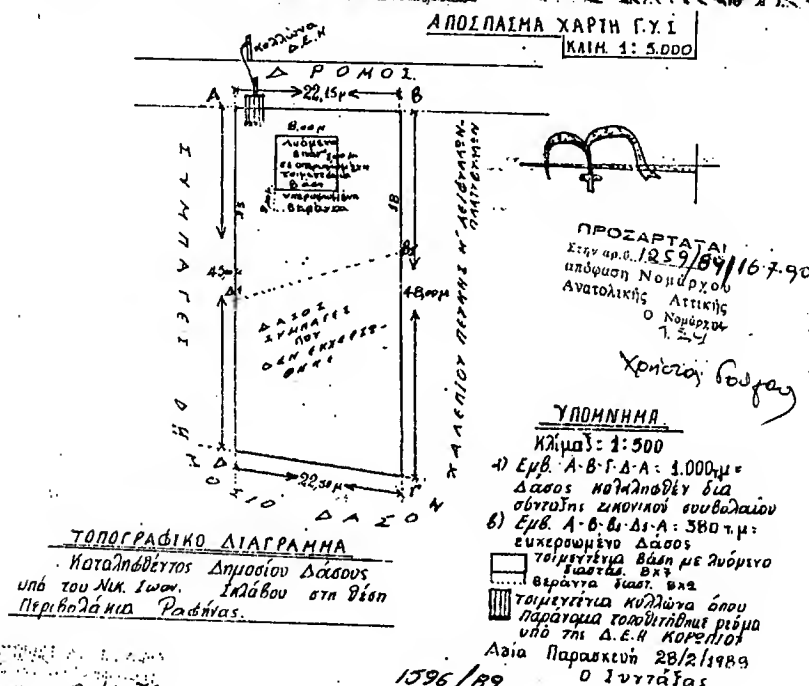 ΑΠΟΣΠΑΣΜΑ ΧΑΡΤΗ Γ.Υ.Σ
ΚΛΙΜ. 1: 5.000
κολλώνα
Δ.Ε.Η
ΔΡΟΜΟΣ
Α 22,15μ Β
8,00μ
Λυόμενο
τσιμεντένια
βάση
βεράντα
ΣΥΜΠΑΓΕΣ ΔΗΜΟΣΙΟ ΔΑΣΟΣ
18
Β1
45,00
Δ1
48,00μ
ΔΑΣΟΣ
ΣΥΜΠΑΓΕΣ
ΠΟΥ
ΔΕΝ
Δ
22,50μ
Γ
ΠΡΟΣΑΡΤΑΤΑΙ
Στην αρ.θ. 1259/89/16-7-90
απόφαση Νομάρχου
Ανατολικής Αττικής
Ο Νομάρχου
ΥΠΟΜΝΗΜΑ
Κλίμαξ: 1:500
Α) Εμβ. Α-Β-Γ-Δ-Α: 1.000τ,μ=
Δάσος καταληφθέν δια
σύνταξης εικονικού συμβολαίου
Β) Εμβ. Α-Β-Β1-Δ1-Α: 380 τ,μ:
εκχερσωμένο Δάσος
τσιμεντένια βάση με λυόμενο
διαστάσ. 8x7
βεράντα διαστ. 8x2
τσιμεντένια κολλώνα όπου
παράνομα τοποθετήθηκε ρεύμα
υπό της Δ.Ε.Η ΚΟΡΩΠΙΟΥ
Αγία Παρασκευή 28/2/1989
Ο Συντάξας
ΤΟΠΟΓΡΑΦΙΚΟ ΔΙΑΓΡΑΜΜΑ
Καταληφθέντος Δημοσίου Δάσους
υπό του Νικ. Ιωαν. Σκλάβου στη θέση
Περιβολάκια Ραφήνας.
1596/89